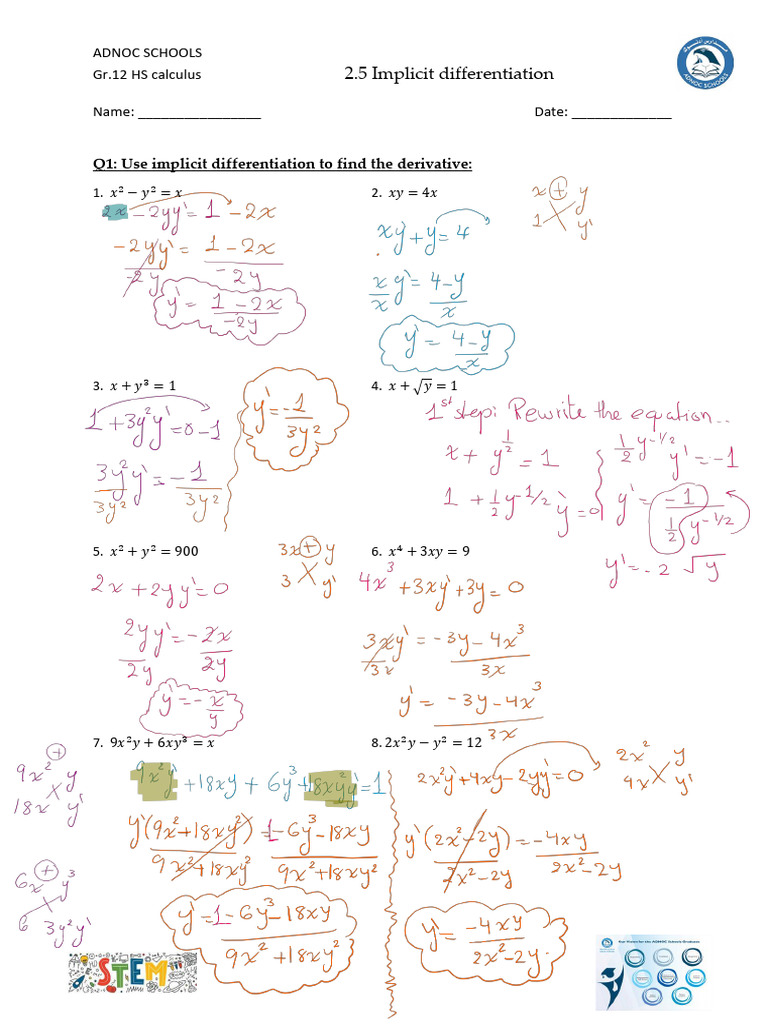 ADNOC SCHOOLS
Gr.12 HS calculus
2.5 Implicit differentiation
مدارس أدنوك
ADNOC SCHOOLS
Name: ________________
Date: _____________
Q1: Use implicit differentiation to find the derivative:
1. x² − y² = x
2x − 2yy' = 1 − 2x
−2yy' / −2y = 1 − 2x / −2y
y' = 1 − 2x / −2y
2. xy = 4x
x + y
1 y'
xy' + y = 4
x/x y' = 4−y / x
y' = 4−y / x
3. x + y³ = 1
1 + 3y²y' = 0 − 1
3y²y' / 3y² = −1 / 3y²
y' = −1 / 3y²
4. x + √y = 1
1st step: Rewrite the equation...
x + y^1/2 = 1
1 + 1/2 y^−1/2 y' = 0
1/2 y^−1/2 y' = −1
y' = −1 / 1/2 y^−1/2
y' = −2 √y
5. x² + y² = 900
2x + 2yy' = 0
2yy' / 2y = −2x / 2y
y' = − x/y
6. x⁴ + 3xy = 9
3x + y
3 y'
4x³ + 3xy' + 3y = 0
3xy' / 3x = −3y − 4x³ / 3x
y' = −3y − 4x³ / 3x
7. 9x²y + 6xy³ = x
9x² + y
18x y'
6x + y³
6 3y²y'
9x²y' + 18xy + 6y³ + 18xy²y' = 1
y'(9x² + 18xy²) / 9x² + 18xy² = 1 − 6y³ − 18xy / 9x² + 18xy²
y' = 1 − 6y³ − 18xy / 9x² + 18xy²
8. 2x²y − y² = 12
2x² y
4x y'
2x²y' + 4xy − 2yy' = 0
y'(2x² − 2y) / 2x² − 2y = −4xy / 2x² − 2y
y' = −4xy / 2x² − 2y
STEM
Our Vision for the ADNOC Schools Graduate